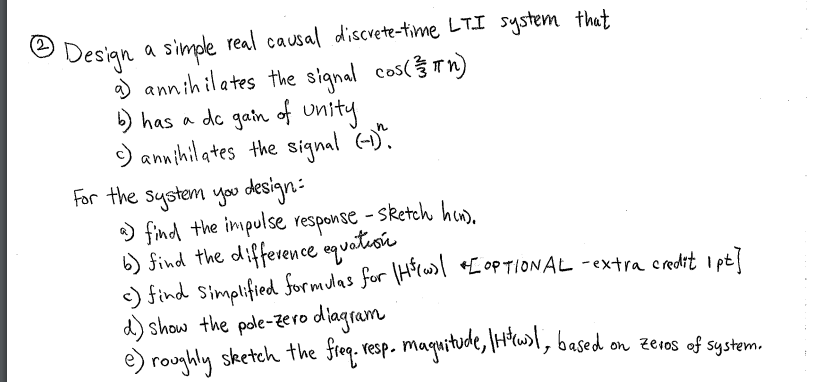 ② Design a simple real causal discrete-time LTI system that
a) annihilates the signal cos(⅔πn)
b) has a dc gain of unity
c) annihilates the signal (-1)ⁿ.
For the system you design:
a) find the impulse response - sketch h(n).
b) find the difference equation
c) find simplified formulas for |Hᶠ(ω)| *[OPTIONAL - extra credit 1 pt]
d) show the pole-zero diagram
e) roughly sketch the freq. resp. magnitude, |Hᶠ(ω)|, based on zeros of system.